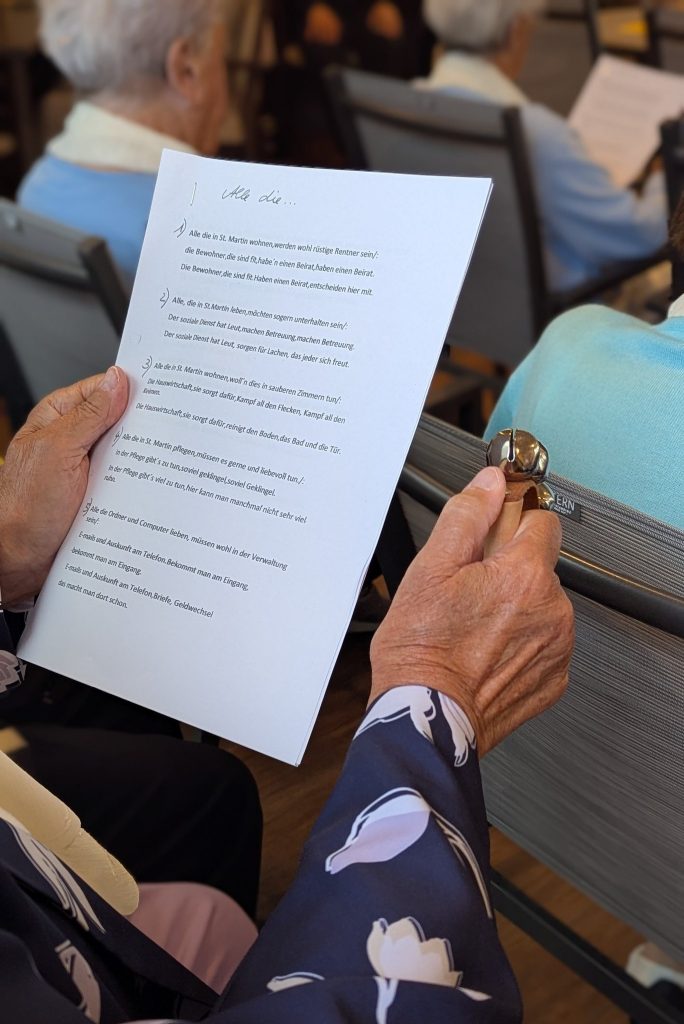 Alle die...
1) Alle die in St. Martin wohnen,werden wohl rüstige Rentner sein/:
die Bewohner,die sind fit,habe´n einen Beirat,haben einen Beirat.
Die Bewohner,die sind fit.Haben einen Beirat,entscheiden hier mit.
2) Alle, die in St.Martin leben,möchten sogern unterhalten sein/:
Der soziale Dienst hat Leut,machen Betreuung,machen Betreuung.
Der soziale Dienst hat Leut, sorgen für Lachen, das jeder sich freut.
3) Alle die in St. Martin wohnen,woll´n dies in sauberen Zimmern tun/:
Die Hauswirtschaft,sie sorgt dafür,Kampf all den Flecken, Kampf all den
Keimen.
Die Hauswirtschaft,sie sorgt dafür,reinigt den Boden,das Bad und die Tür.
4) Alle die in St. Martin pflegen,müssen es gerne und liebevoll tun,/:
In der Pflege gibt´s zu tun,soviel geklingel,soviel Geklingel.
In der Pflege gibt´s viel zu tun,hier kann man manchmal nicht sehr viel
ruhn.
5) Alle die Ordner und Computer lieben, müssen wohl in der Verwaltung
sein/:
E-mails und Auskunft am Telefon.Bekommt man am Eingang,
bekommt man am Eingang.
E-mails und Auskunft am Telefon,Briefe, Geldwechsel
das macht man dort schon.